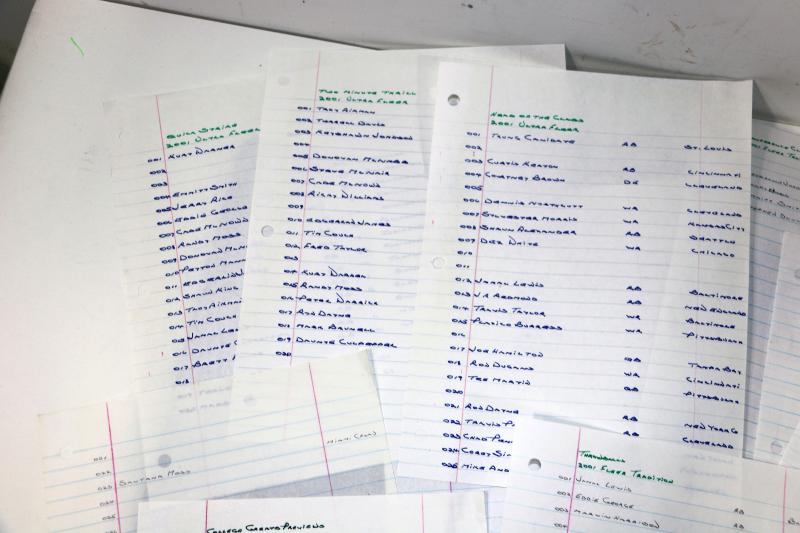 QUICK STRIKE
2001 ULTRA FLEER
001 KURT WARNER
002
003
004 EMMITT SMITH
005 JERRY RICE
006 EDDIE GEORGE
007 CADE MCNOWN
008 RANDY MOSS
009 DONOVAN MCN
010 PEYTON MANN
011 EDGERRIN J
012 SHAUN KING
013 TROY AIKMAN
014 TIM COUCH
015 JAMAL LEW
016 DAUNTE C
017 BRETT F
018
TWO MINUTE THRILL
2001 ULTRA FLEER
001 TROY AIKMAN
002 TERRELL DAVIS
003 KEYSHAWN JOHNSON
004
005 DONOVAN MCNABB
006 STEVE MCNAIR
007 CADE MCNOWN
008 RICKY WILLIAMS
009
010 EDGERRIN JAMES
011 TIM COUCH
012 FRED TAYLOR
013
014 KURT WARNER
015 RANDY MOSS
016 PETER WARRICK
017 RON DAYNE
018 MARK BRUNELL
019 DAUNTE CULPEPPER
020
HEAD OF THE CLASS
2001 ULTRA FLEER
001 TRUNG CANIDATE RB ST. LOUIS
002
003 CURTIS KEATON RB CINCINNATI
004 COURTNEY BROWN DE CLEVELAND
005
006 DENNIS NORTHCUTT WR CLEVELAND
007 SYLVESTER MORRIS WR KANSAS CITY
008 SHAUN ALEXANDER RB SEATTLE
009 DEZ WHITE WR CHICAGO
010
011
012 JAMAL LEWIS RB BALTIMORE
013 JR REDMOND RB NEW ENGLAND
014 TRAVIS TAYLOR WR BALTIMORE
015 PLAXICO BURRESS WR PITTSBURGH
016
017 JOE HAMILTON QB TAMPA BAY
018 RON DUGANS WR CINCINNATI
019 TEE MARTIN QB PITTSBURGH
020
021 RON DAYNE RB NEW YORK G
022 TRAVIS P RB CLEVELAND
023 CHAD PEN
024 COREY SIM
025 MIKE AND
021
022 SANTANA MOSS MIAMI (FLA)
023
024
025
COLLEGE GREATS PREVIEWS
THROWBACK
2001 FLEER TRADITION
001 JAMAL LEWIS
002 EDDIE GEORGE RB
003 MARVIN HARRISON